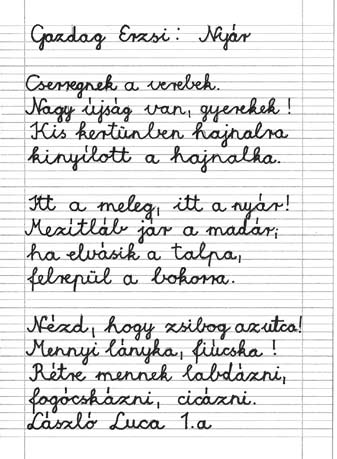 Gazdag Erzsi: Nyár
Cserregnek a verebek.
Nagy újság van, gyerekek!
Kis kertünben hajnalra
kinyílott a hajnalka.
Itt a meleg, itt a nyár!
Mezítláb jár a madár;
ha elvásik a talpa,
felrepül a bokorra.
Nézd, hogy zsibog az utca!
Mennyi lányka, fiúcska!
Rétre mennek labdázni,
fogócskázni, cicázni.
László Luca 1.a